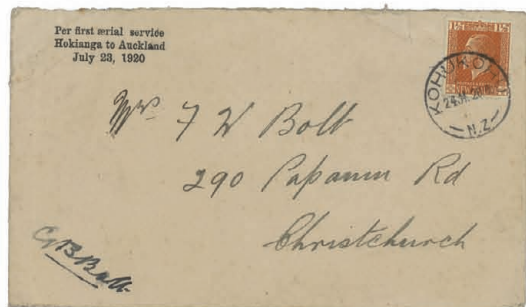 Per first aerial service
Hokianga to Auckland
July 23, 1920
1½ 1½
KOHUKOHU
N.Z
Mrs F W Bolt
290 Papanui Rd
Christchurch
Bolt